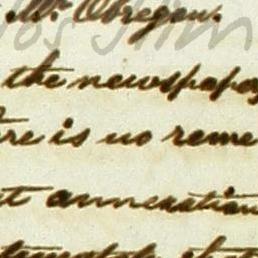 Mr Obregon.
the newspaper
re is no reme
t annexation